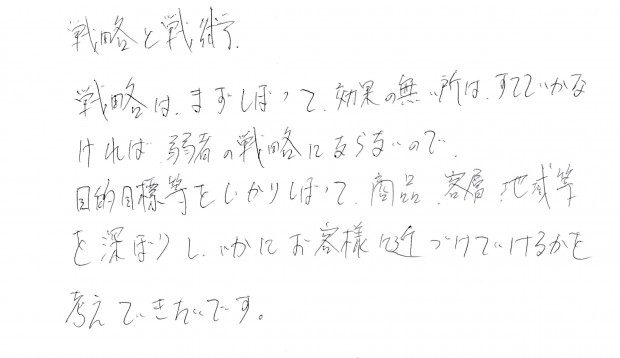 戦略と戦術.
戦略は、まずしぼって、効果の無い所は、すてていかな
ければ 弱者の戦略にならないので、
目的目標等をしっかりしぼって、商品、客層、地域等
を深ぼりし、いかにお客様に近づけていけるかを
考えていきたいです。